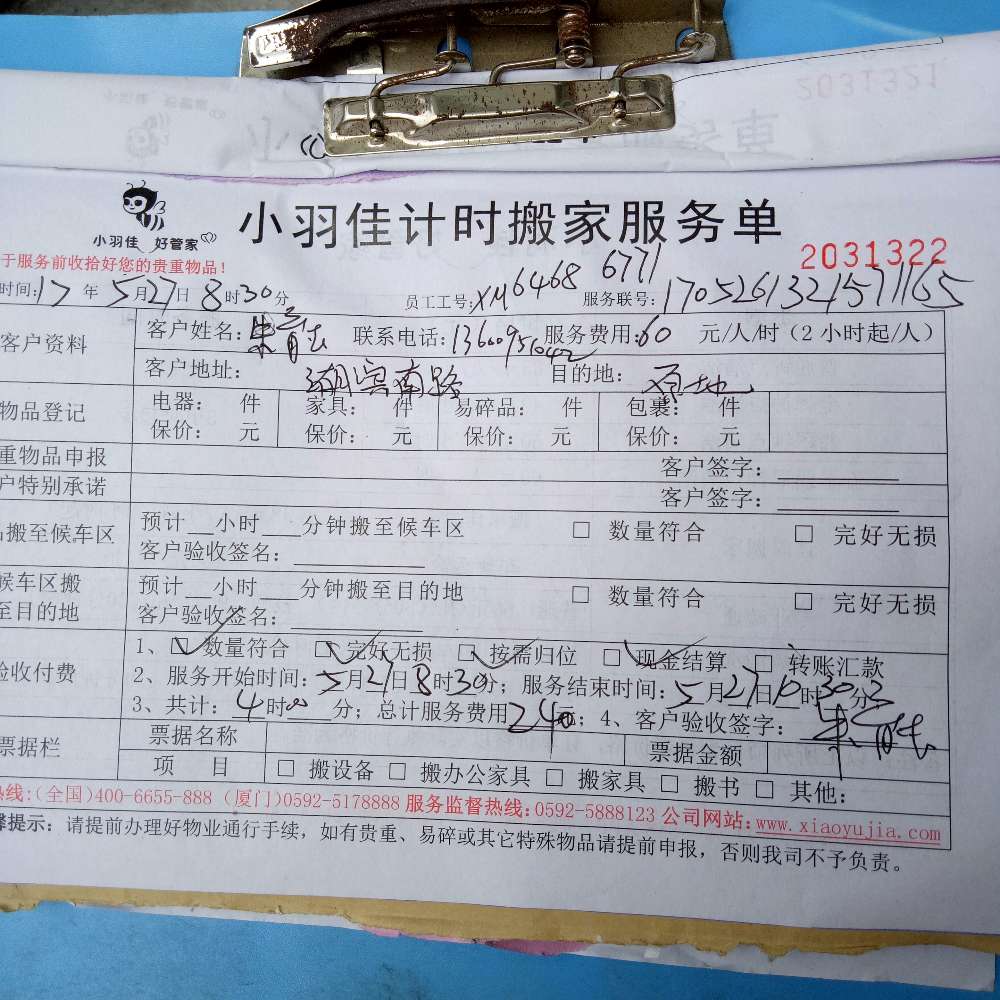 2031321
小羽佳 好管家
小羽佳计时搬家服务单
2031322
于服务前收拾好您的贵重物品！
时间:17年5月27日8时30分 员工工号:XM6468 6771 服务联号:1705261321571165
客户资料 客户姓名: 联系电话: 服务费用:60元/人/时（2小时起/人）
客户地址: 湖滨南路 目的地:
物品登记 电器： 件 家具： 件 易碎品： 件 包裹： 件
保价： 元 保价： 元 保价： 元 保价： 元
重物品申报 客户签字：
户特别承诺 客户签字：
搬至候车区 预计__小时___分钟搬至候车区 □ 数量符合 □ 完好无损
客户验收签名：
候车区搬至目的地 预计__小时___分钟搬至目的地 □ 数量符合 □ 完好无损
客户验收签名：
验收付费 1、☑数量符合 ☑完好无损 ☑按需归位 ☑现金结算 □ 转账汇款
2、服务开始时间：5月27日8时30分；服务结束时间：5月27日10时30分
3、共计：4时00分；总计服务费用240元；4、客户验收签字：
票据栏 票据名称 票据金额
项 目 □ 搬设备 □ 搬办公家具 □ 搬家具 □ 搬书 □ 其他：
热线:(全国)400-6655-888 (厦门)0592-5178888 服务监督热线:0592-5888123 公司网站:www.xiaoyujia.com
提示：请提前办理好物业通行手续，如有贵重、易碎或其它特殊物品请提前申报，否则我司不予负责。